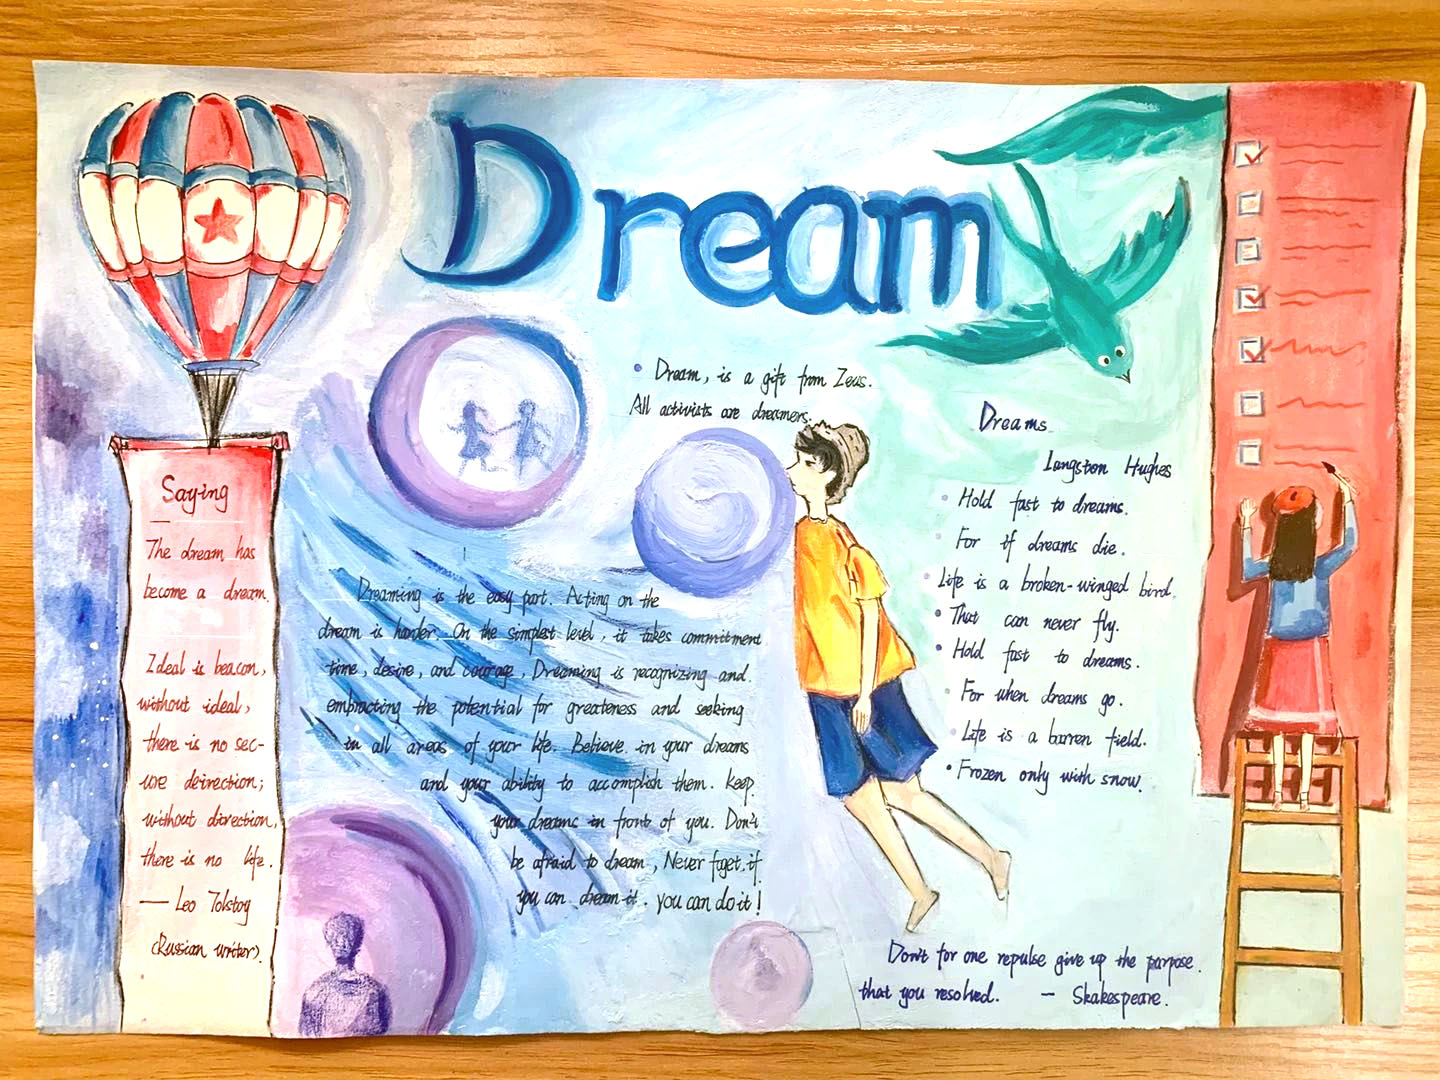 Dream
Saying
The dream has
become a dream.
Ideal is beacon,
without ideal,
there is no sec-
ure deirection;
without direction,
there is no life.
— Leo Tolstoy
(Russian writer).
Dream, is a gift from Zeus.
All activists are dreamers.
Dreaming is the easy part. Acting on the
dream is harder. On the simplest level, it takes commitment
time, desire, and courage, Dreaming is recognizing and.
embracting the potential for greateness and seeking
in all areas of your life. Believe in your dreams
and your ability to accomplish them. keep
your dreams in front of you. Don't
be afraid to dream, Never foget, if
you can dream it. you can do it!
Dreams
Langston Hughes
Hold fast to dreams.
For if dreams die.
Life is a broken-winged bird.
That can never fly.
Hold fast to dreams.
For when dreams go.
Life is a barren field.
Frozen only with snow.
Don't for one repulse give up the purpose.
that you resolved. — Skakespeare.